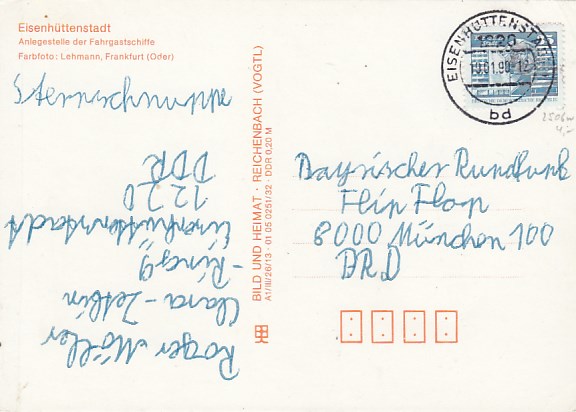 Eisenhüttenstadt
Anlegestelle der Fahrgastschiffe
Farbfoto: Lehmann, Frankfurt (Oder)
Sternschnuppe
Roger Möller
Clara-Zetkin
-Ring 9
Eisenhüttenstadt
1220
DDR
BILD UND HEIMAT · REICHENBACH (VOGTL)
A1/III/26/13 · 01 05 0251/32 · DDR 0,20 M
EISENHÜTTENSTADT
1220
bd
Bayrischer Rundfunk
Flip Flop
8000 München 100
BRD